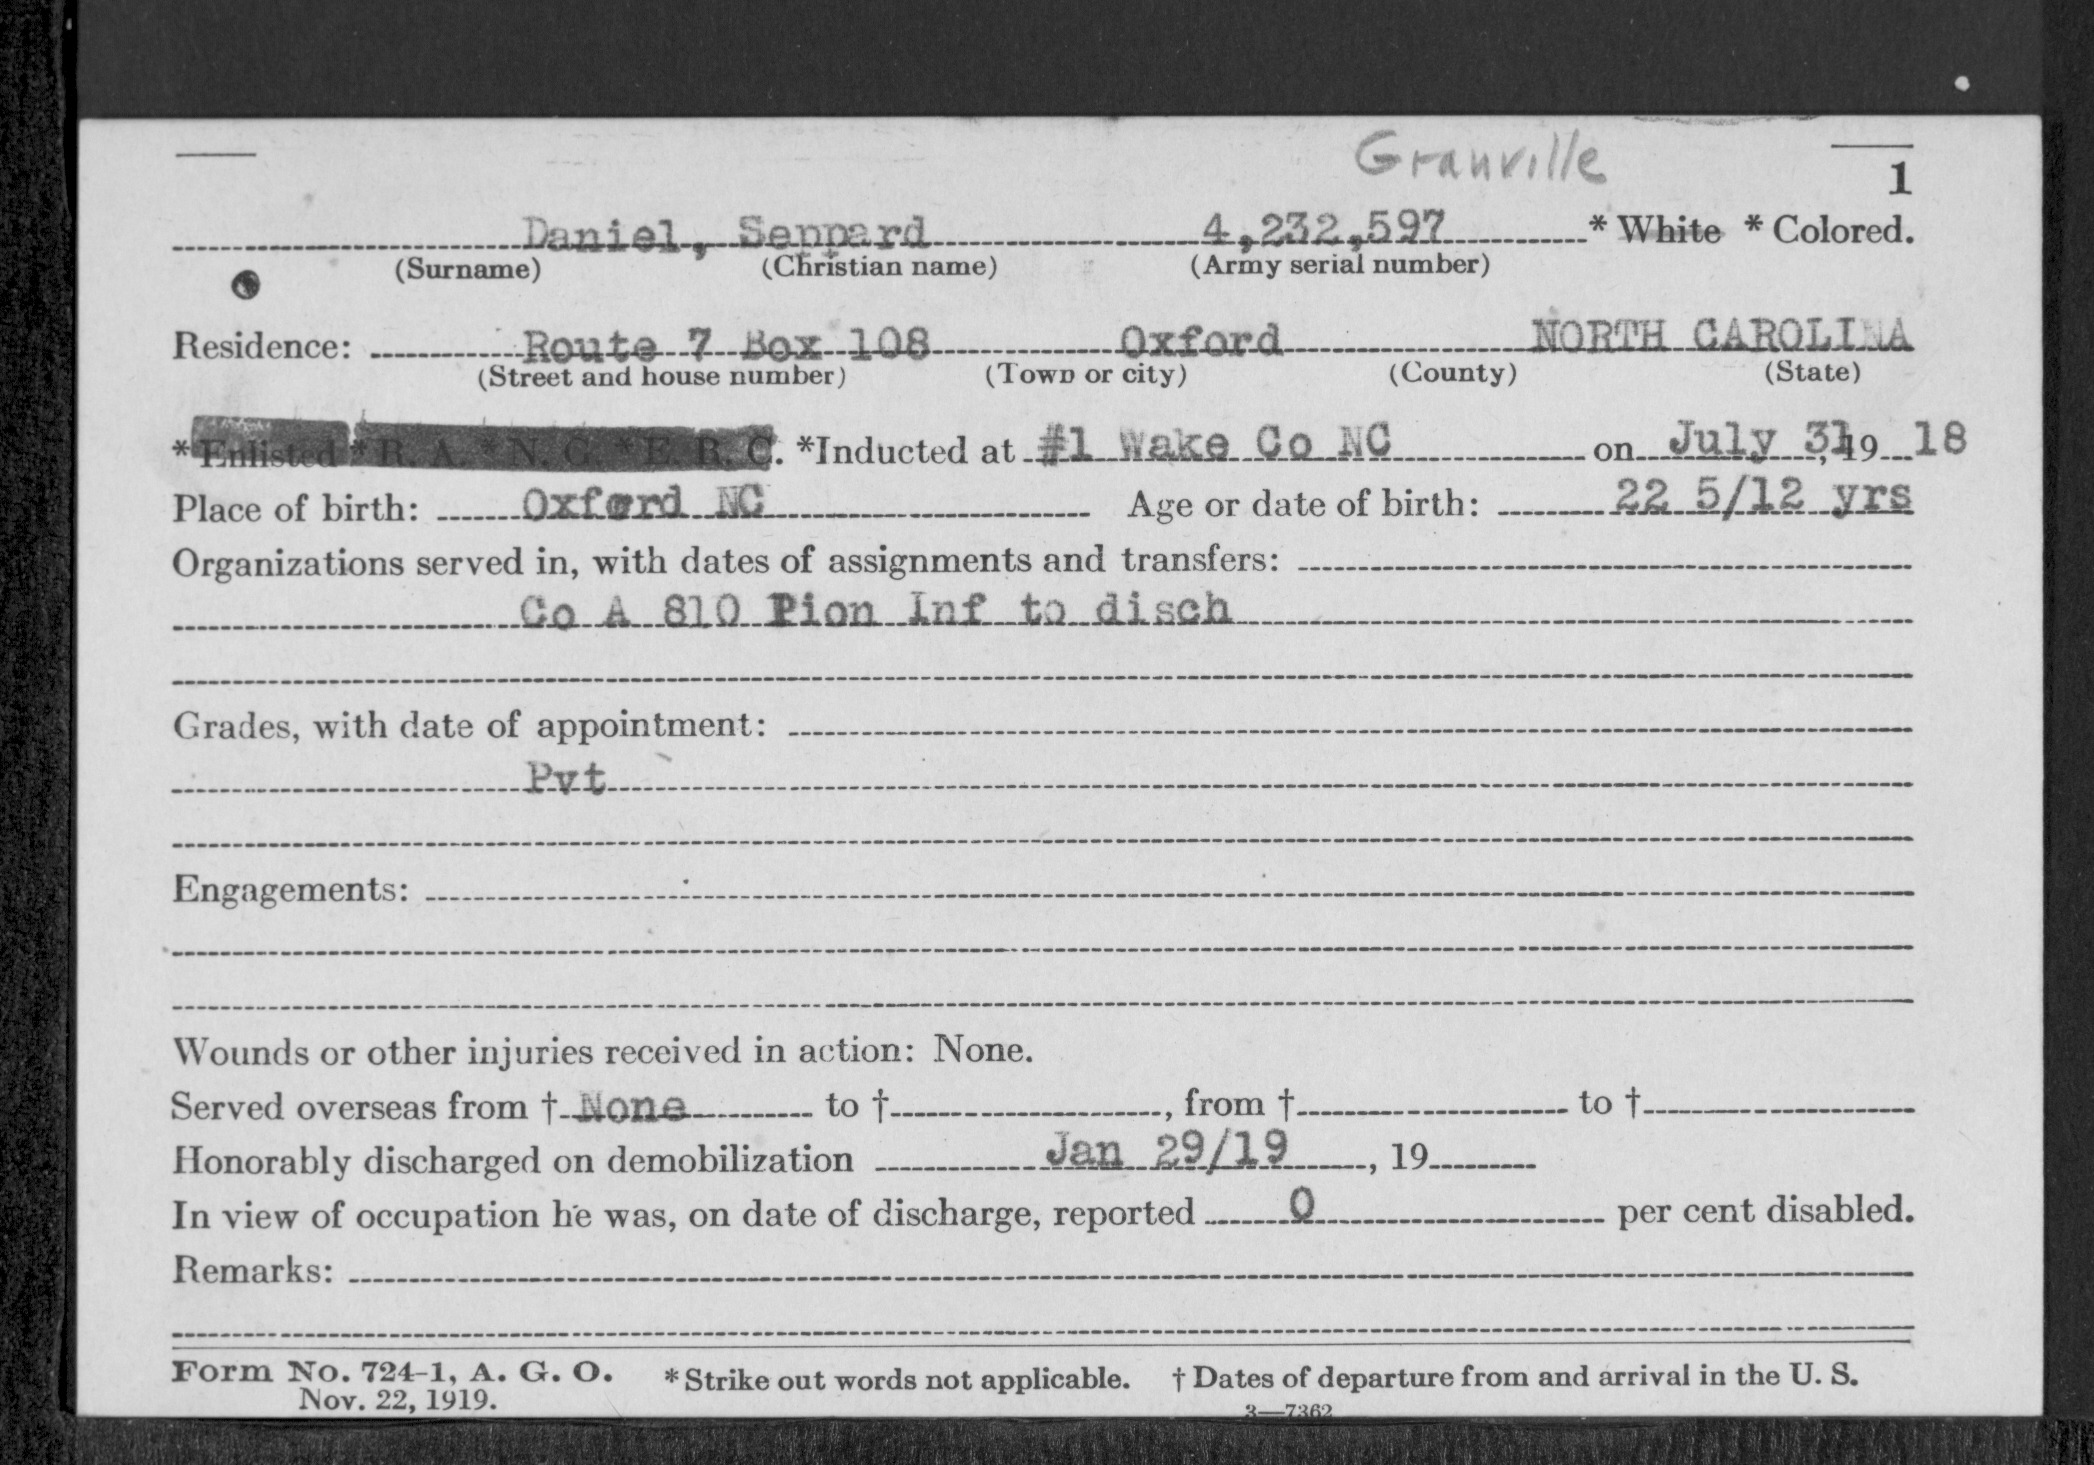 Granville
1
Daniel, Seppard 4,232,597 * White * Colored.
(Surname) (Christian name) (Army serial number)
Residence: Route 7 Box 108 Oxford NORTH CAROLINA
(Street and house number) (Town or city) (County) (State)
* Enlisted * R. A. * N. G. * E. R. C. *Inducted at #1 Wake Co NC on July 31, 19 18
Place of birth: Oxford NC Age or date of birth: 22 5/12 yrs
Organizations served in, with dates of assignments and transfers:
Co A 810 Pion Inf to disch
Grades, with date of appointment:
Pvt
Engagements:
Wounds or other injuries received in action: None.
Served overseas from † None to †, from † to †
Honorably discharged on demobilization Jan 29/19, 19
In view of occupation he was, on date of discharge, reported 0 per cent disabled.
Remarks:
Form No. 724-1, A. G. O. * Strike out words not applicable. † Dates of departure from and arrival in the U. S.
Nov. 22, 1919. 3—7362